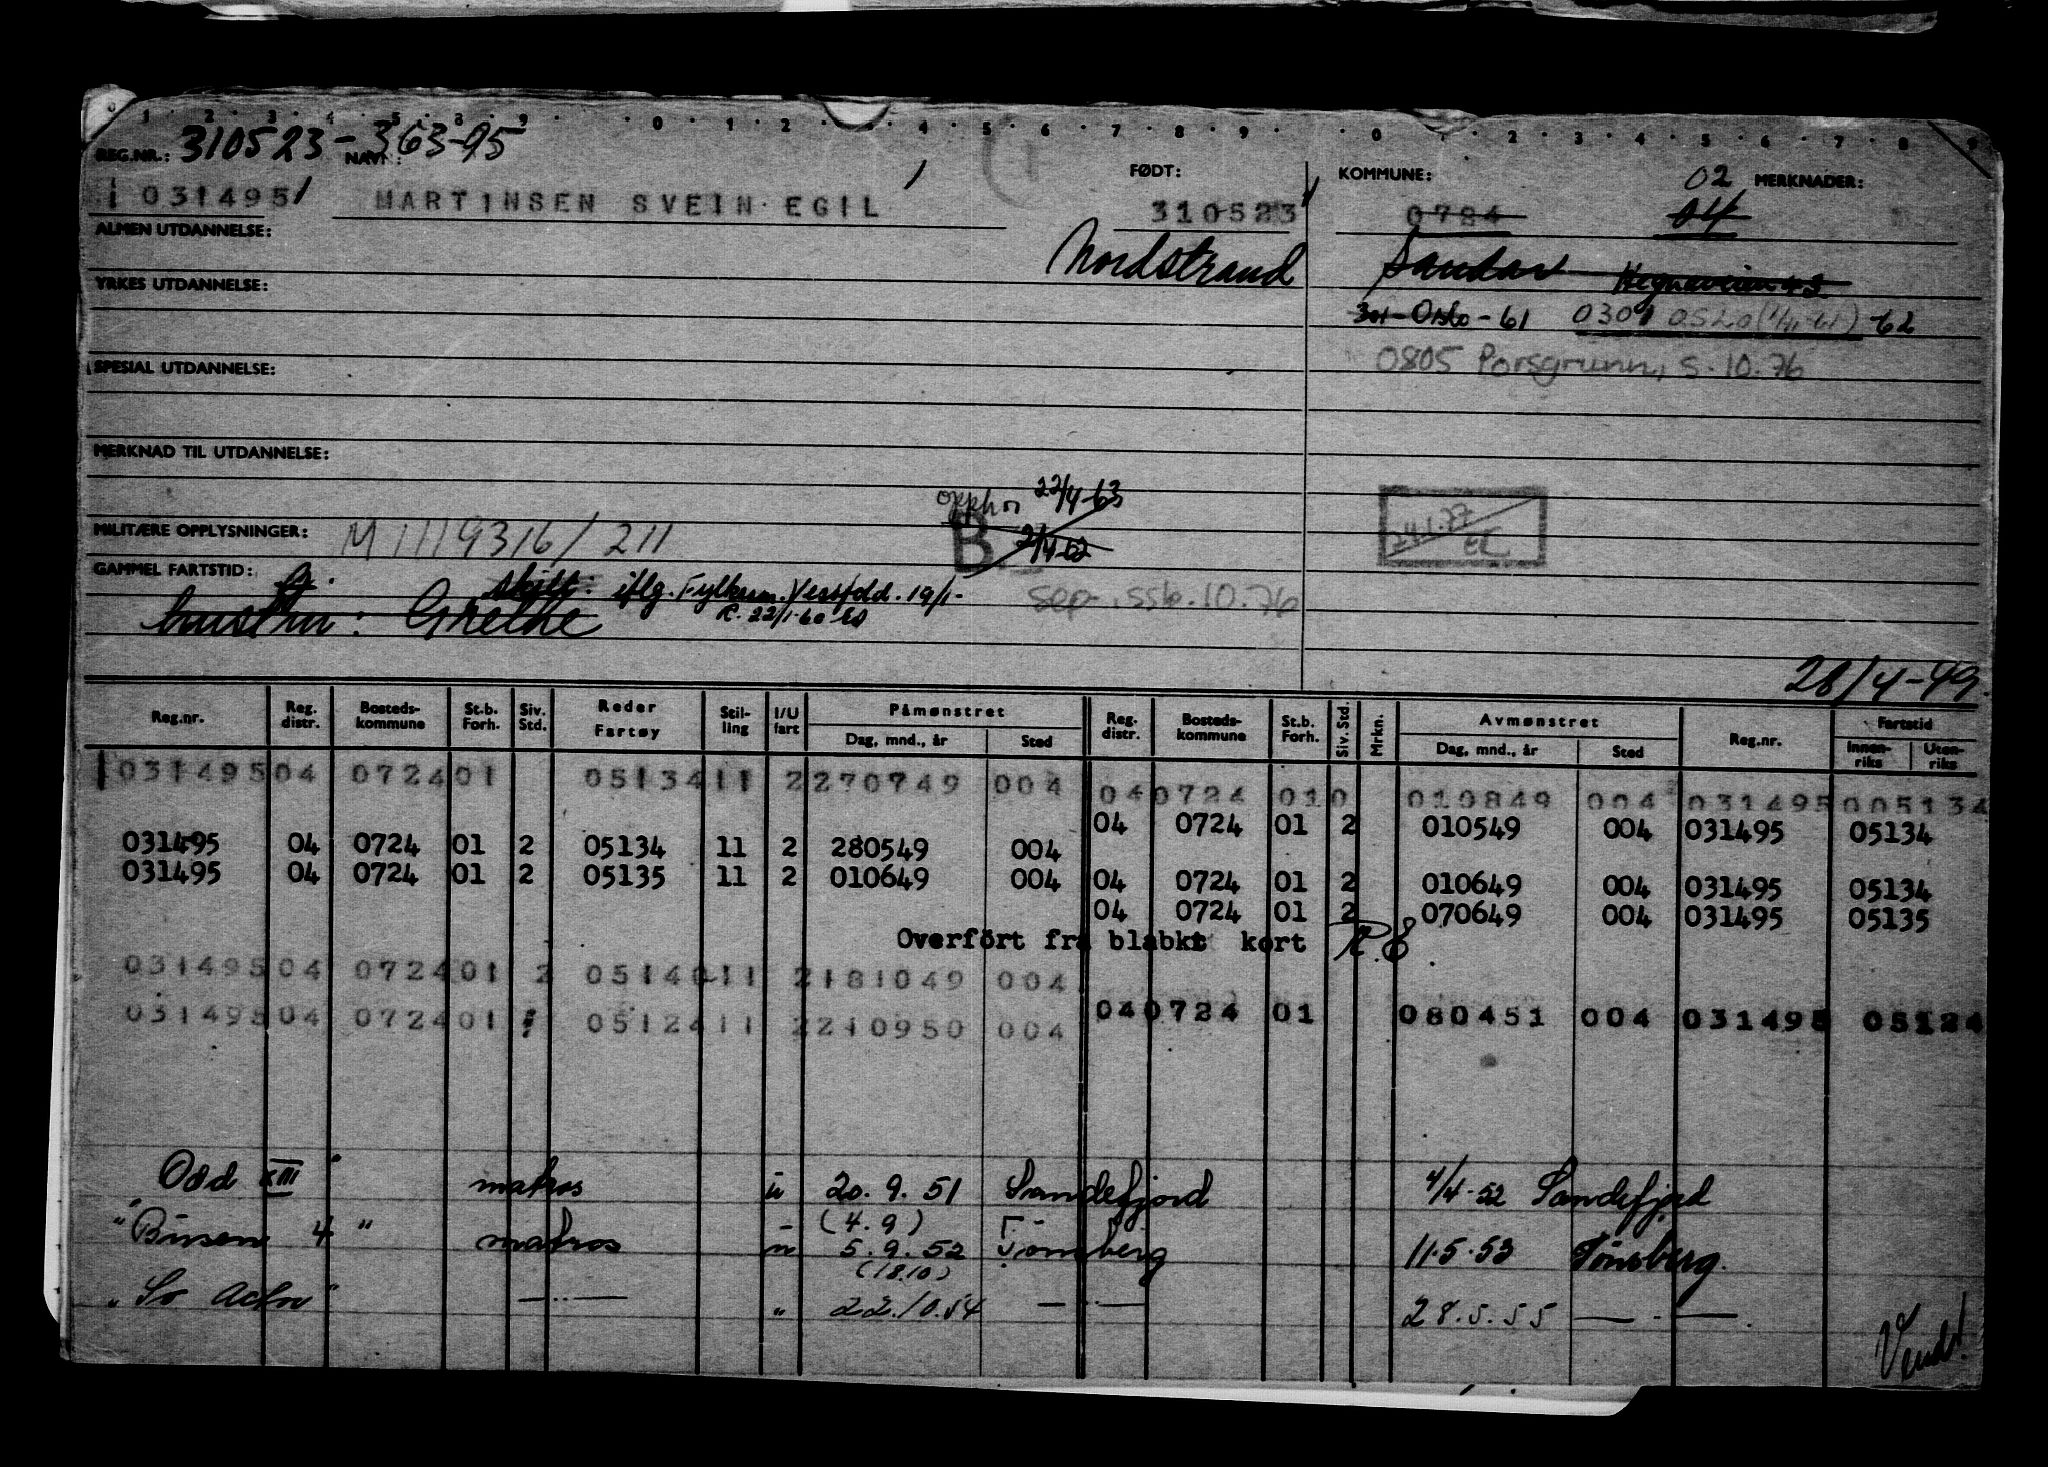 1 2 3 4 5 8 9 0 1 2 4 5 6 7 8 9 0 2 3 4 5 6 7 8 9
REG.NR.: 310523-363-95 NAVN: FØDT: KOMMUNE: 02 MERKNADER:
0314951 MARTINSEN SVEIN EGIL 310523 0724 04
ALMEN UTDANNELSE: Nordstrand Sandar Hegnaveien 42
YRKES UTDANNELSE: 301-Oslo-61 0301 OSLO (1/11-61) -62
SPESIAL UTDANNELSE: 0805 Porsgrunn, s.10.76
MERKNAD TIL UTDANNELSE:
opph 22/4-63
MILITÆRE OPPLYSNINGER: M 1119316/211 B 2/4-62 24.1.77
GAMMEL FARTSTID: G.
skilt: iflg. Fylkesm. Vestfold. 19/1- sep., ssb.10.76
hustru: Grethe R. 22/1-60
28/4-49.
Reg.nr. Reg. distr. Bosteds-kommune St.b. Forh. Siv. Std. Reder Fartøy Stil-ling I/U fart Påmønstret Dag, mnd., år Sted Reg. distr. Bosteds-kommune St.b. Forh. Siv. Std. Mrkn. Avmønstret Dag, mnd., år Sted Reg.nr. Fartstid Innen-riks Uten-riks
031495 04 0724 01 05134 11 2 270749 004 04 0724 01 0 010849 004 031495 005134
04 0724 01 2 010549 004 031495 05134
031495 04 0724 01 2 05134 11 2 280549 004
031495 04 0724 01 2 05135 11 2 010649 004 04 0724 01 2 010649 004 031495 05134
04 0724 01 2 070649 004 031495 05135
Overført fra blabkt kort R.E
031495 04 0724 01 2 05140 11 2 181049 004
031495 04 0724 01 05124 11 2 210950 004 04 0724 01 080451 004 031495 05124
"Odd XIII" matros u 20.9.51 Sandefjord 4/4-52 Sandefjord
(4.9)
"Busen 4" matros u 5.9.52 Tønsberg 11.5.53 Tønsberg.
(18.10)
" " — " — " 22.10.54 — " — 28.5.55 — " —
Vend!